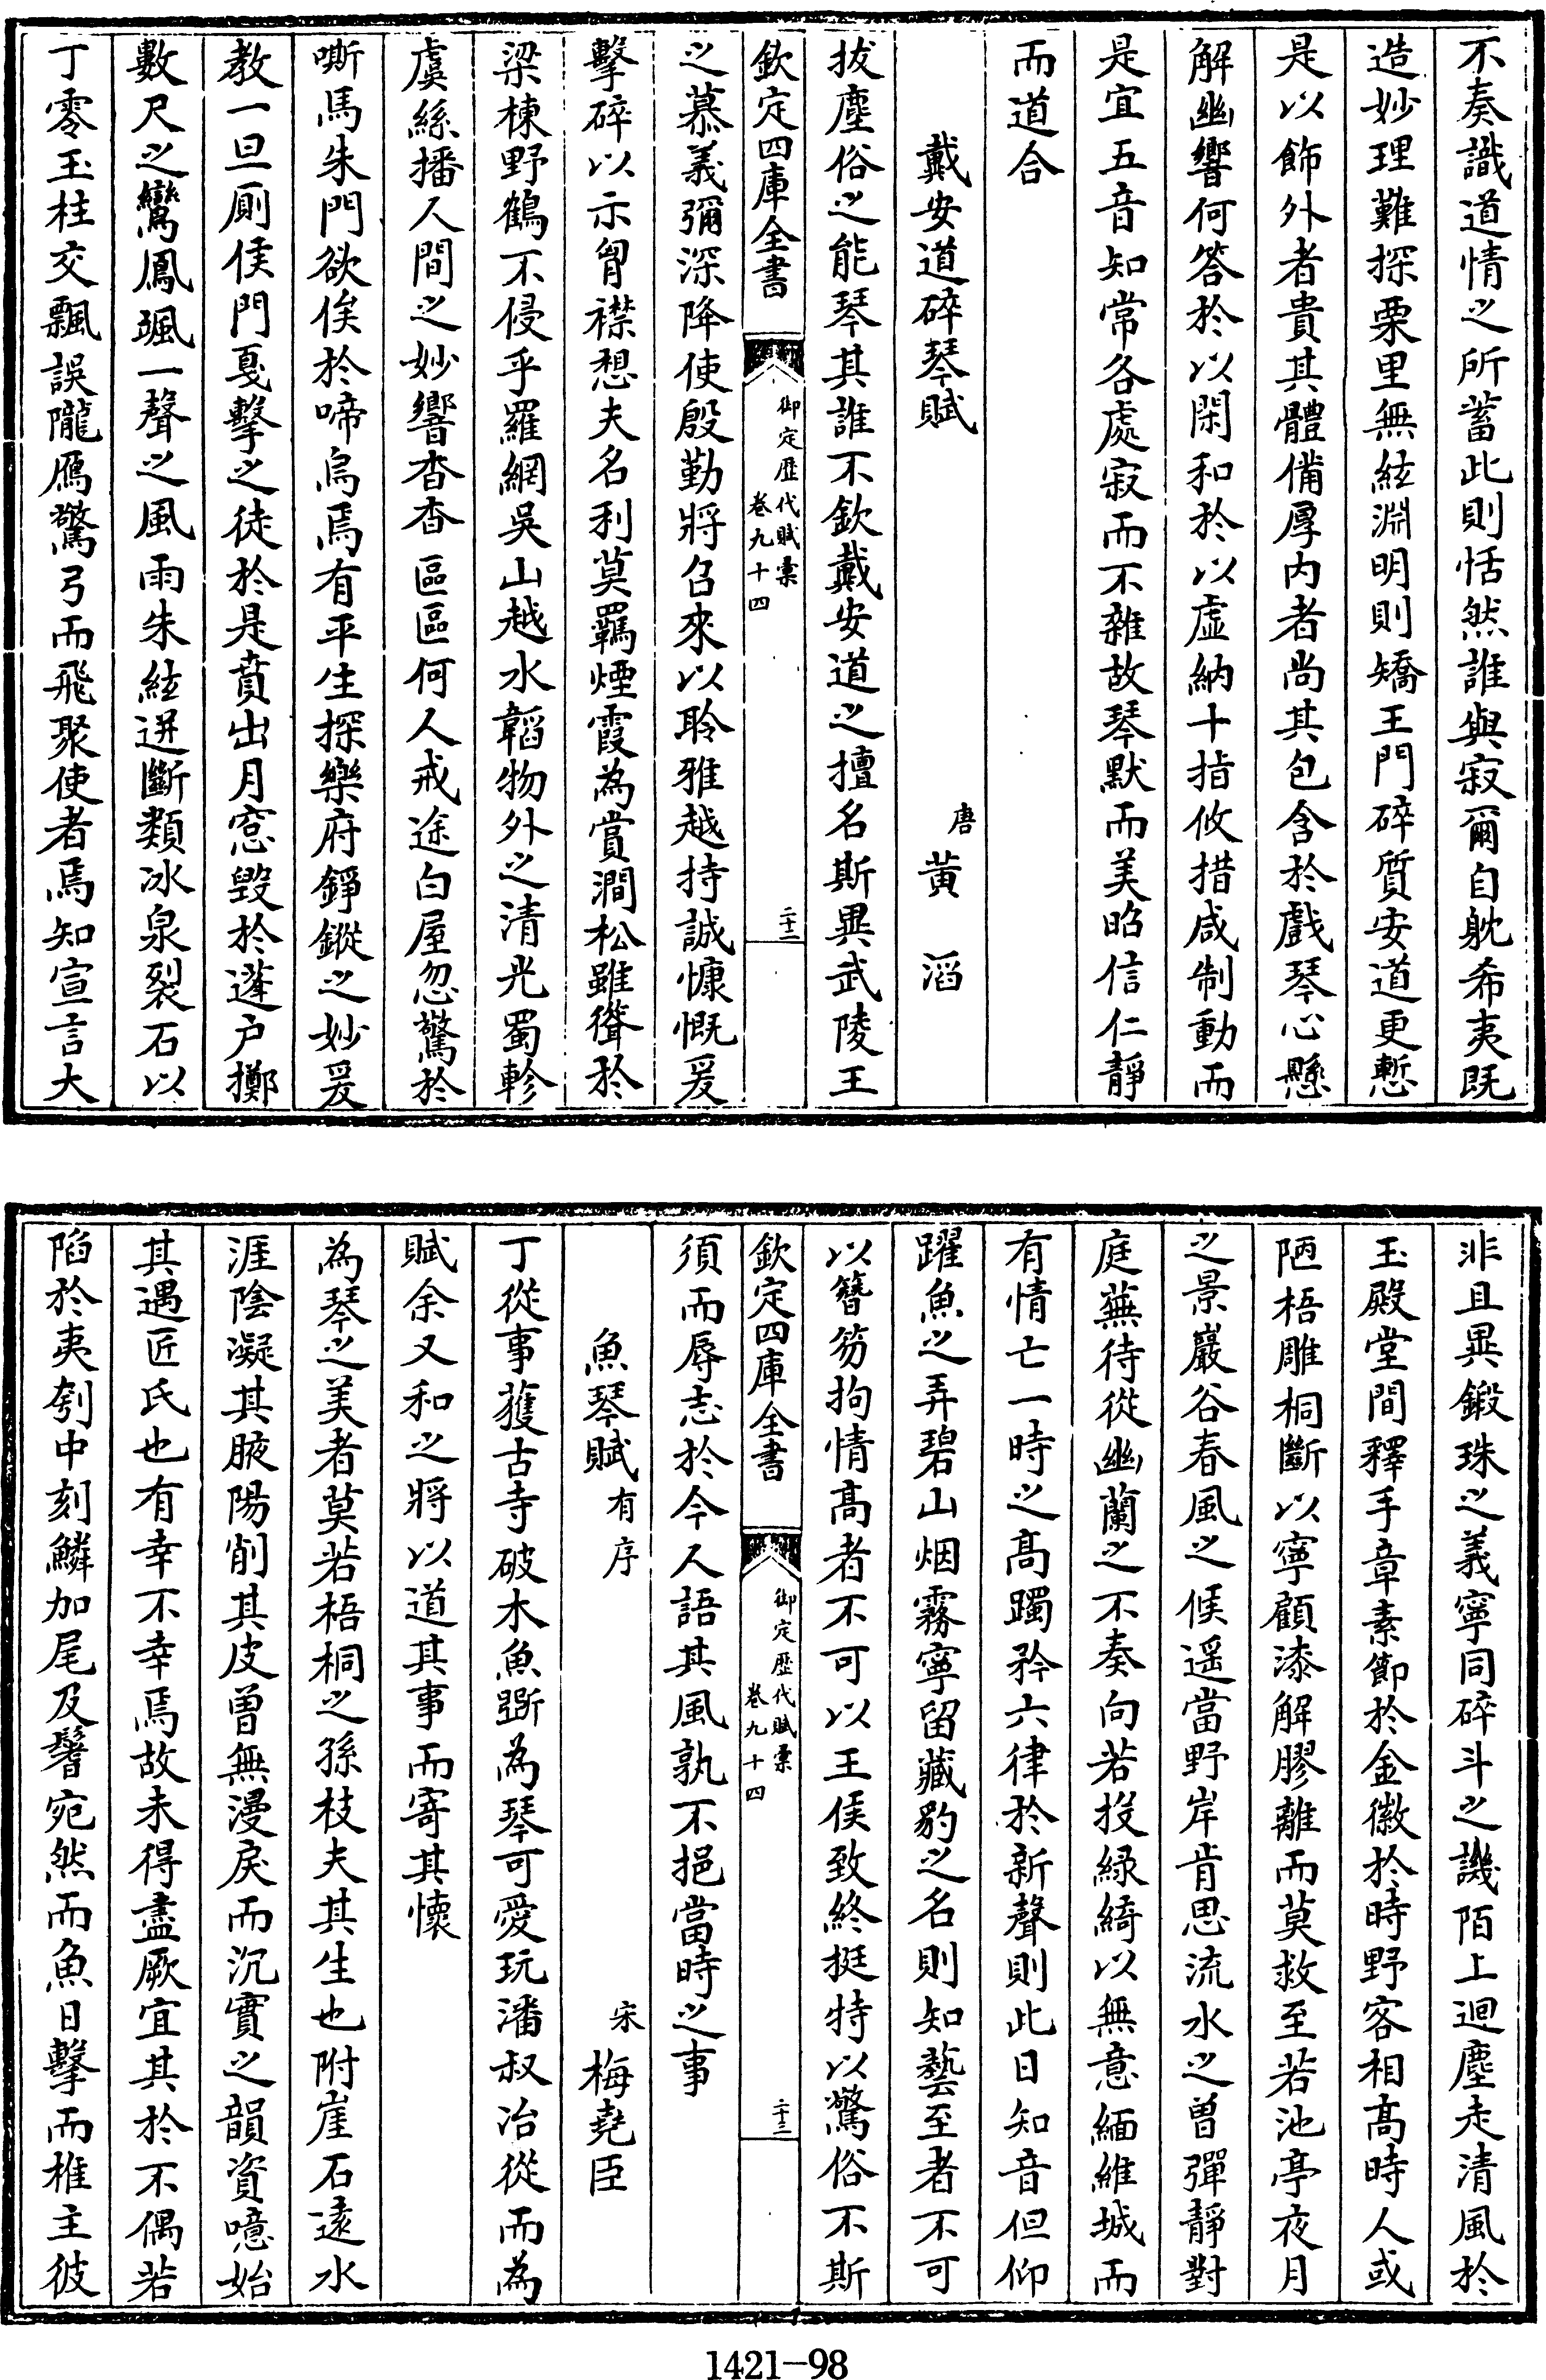 不奏識道情之所蓄此則恬然誰與寂爾自躭希夷既
造妙理難探栗里無絃淵明則矯王門碎質安道更慙
是以飾外者貴其體備厚内者尚其包含於戲琴心懸
解幽響何答於以閑和於以虛納十指攸措咸制動而
是宜五音知常各處寂而不雜故琴默而美昭信仁靜
而道合
戴安道碎琴賦
唐黃滔
拔塵俗之能琴其誰不欽戴安道之擅名斯異武陵王
欽定四庫全書
御定歴代賦彙
卷九十四
二十二
之慕義彌深降使殷勤將召來以聆雅越持誠慷慨爰
擊碎以示胷襟想夫名利莫羈煙霞為賞澗松雖聳於
梁棟野鶴不侵乎羅網吳山越水韜物外之清光蜀軫
虞絲播人間之妙響杳杳區區何人戒途白屋忽驚於
嘶馬朱門欲俟於啼烏焉有平生探樂府錚鏦之妙爰
教一旦厠侯門戛擊之徒於是賁出月窓毀於蓬户擲
數尺之鸞鳳颯一聲之風雨朱絃迸斷類冰泉裂石以
丁零玉柱交飄誤隴鴈驚弓而飛聚使者焉知宣言大
非且異鍛珠之義寧同碎斗之譏陌上迴塵走清風於
玉殿堂間釋手章素節於金徽於時野客相高時人或
陋梧雕桐斷以寧顧漆解膠離而莫救至若池亭夜月
之景巖谷春風之候遥當野岸肯思流水之曾彈靜對
庭蕪待從幽蘭之不奏向若投緑綺以無意緬維城而
有情亡一時之高躅矜六律於新聲則此日知音但仰
躍魚之弄碧山烟霧寧留藏豹之名則知藝至者不可
以簪笏拘情高者不可以王侯致終挺特以驚俗不斯
欽定四庫全書
御定歴代賦彙
卷九十四
二十三
須而辱志於今人語其風孰不挹當時之事
魚琴賦有序
宋梅堯臣
丁從事獲古寺破木魚斲為琴可愛玩潘叔治從而為
賦余又和之將以道其事而寄其懷
為琴之美者莫若梧桐之孫枝夫其生也附崖石遠水
涯陰凝其腋陽削其皮曾無漫戾而沉實之韻資噫始
其遇匠氏也有幸不幸焉故未得盡厥宜其於不偶若
陷於夷刳中刻鱗加尾及鬐宛然而魚日擊而椎主彼
1421-98